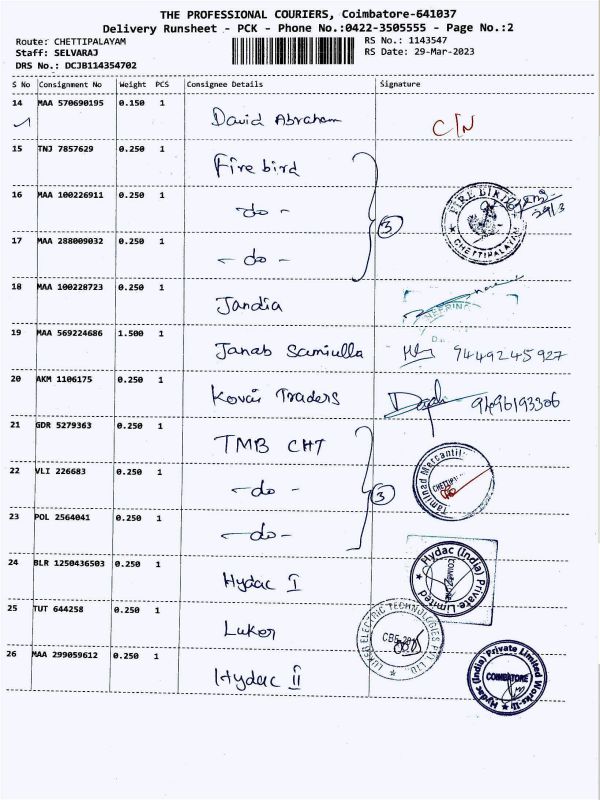 THE PROFESSIONAL COURIERS, Coimbatore-641037
Delivery Runsheet - PCK - Phone No.:0422-3505555 - Page No.:2
Route: CHETTIPALAYAM RS No.: 1143547
Staff: SELVARAJ RS Date: 29-Mar-2023
DRS No.: DCJB114354702
S No Consignment No Weight PCS Consignee Details Signature
14 MAA 570690195 0.150 1 David Abraham C/N
15 TNJ 7857629 0.250 1 Fire bird
16 MAA 100226911 0.250 1 - do -
FIRE BIRD CHETTIPALAYAM 29/3
3
17 MAA 288009032 0.250 1 - do -
18 MAA 100228723 0.250 1 Jandia
19 MAA 569224686 1.500 1 Janab Samiulla 9449245927
20 AKM 1106175 0.250 1 Kovai Traders 9496193306
21 GDR 5279363 0.250 1 TMB CHT
22 VLI 226683 0.250 1 - do -
3
Tamilnad Mercantile
23 POL 2564041 0.250 1 - do -
24 BLR 1250436503 0.250 1 Hydac I
Hydac (India) Private Limited
25 TUT 644258 0.250 1 Luker
LUKER ELECTRIC TECHNOLOGIES PVT. LTD.
26 MAA 299059612 0.250 1 Hydac II
Hydac (India) Private Limited Works-II
COIMBATORE